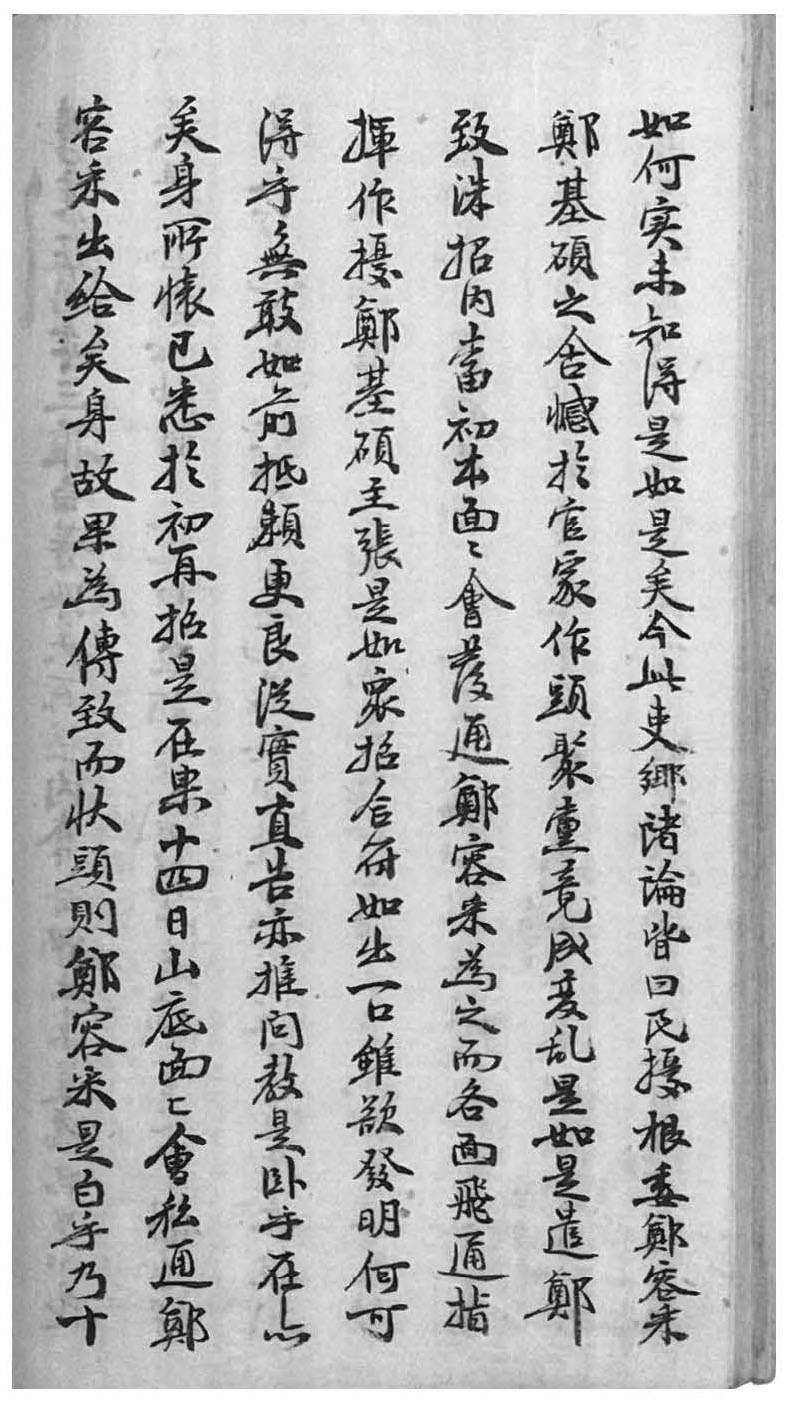 如何实未知得是如是矣今此吏鄕諸論皆曰民擾根委鄭容采
鄭基碩之含憾於官家作頭聚黨竟成變乱是如是遣鄭
致洙招內當初本面〻會發通鄭容采為之而各面飛通指
揮作擾鄭基碩主張是如衆招合符如出一口雖欲發明何可
得乎無敢如前抵賴更良從實直告亦推問敎是卧乎在亦
矣身所懷已悉於初再招是在果十四日山底面〻會私通鄭
容采出給矣身故果為傳致而狀頭則鄭容采是白乎乃十